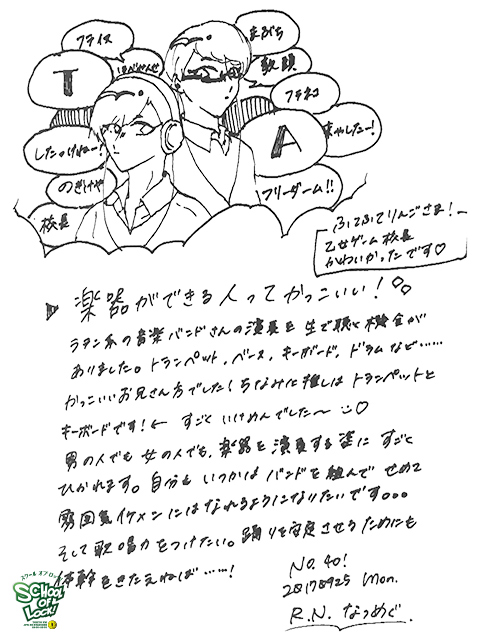 フライス
T
はべやんせ
したっけねー!
のぎけや
校長
まぶち
教頭
フラネコ
A
まやしたー!
フリーダーム!!
ふてふてりんごさま!
乙女ゲーム校長
かわいかったです♡
楽器ができる人ってかっこいい!
ラテン系の音楽バンドさんの演奏を生で聴く機会が
ありました。トランペット、ベース、キーボード、ドラムなど……
かっこいいお兄さん方でした!ちなみに推しはトランペットと
キーボードです!← すごくいけめんでした〜 ♡
男の人でも女の人でも、楽器を演奏する姿にすごく
ひかれます。自分もいつかはバンドを組んでせめて
雰囲気イケメンにはなれるようになりたいです。。。
そして歌唱力をつけたい。踊りを安定させるためにも
体幹をきたえねば……!
No.40!
20170925 Mon.
R.N. なつめぐ
スクール オブ ロック!
SCHOOL OF LOCK!